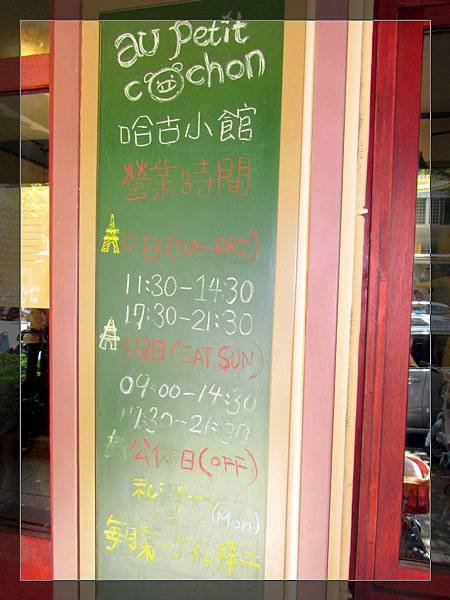 au petit
cochon
哈古小館
營業時間
日(TUE-FRI)
11:30-14:30
17:30-21:30
日(SAT.SUN)
09:00-14:30
17:30-21:30
公休日(OFF)
(Mon)